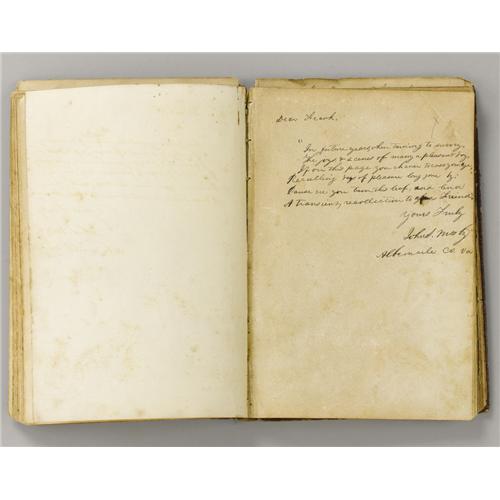 Dear Sarah.
"In future years when turning to survey,
The joys & scenes of many a pleasant day,
If on this page you chance to
Recalling days of pleasure long gone by:
Pause ere you turn the leaf, and lend
A transient, recollection to your Friend,
Yours Truly
John S. Mosby
Albemarle Co. Va